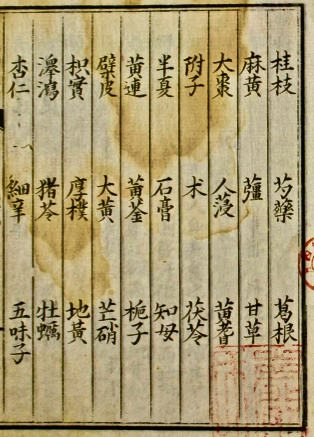 桂枝 芍藥 葛根
麻黃 薑 甘草
大棗 人蓡 黃耆
附子 术 茯苓
半夏 石膏 知母
黃連 黃菳 梔子
檗皮 大黃 芒硝
枳實 厚樸 地黃
澤瀉 猪苓 牡蠣
杏仁 細辛 五味子